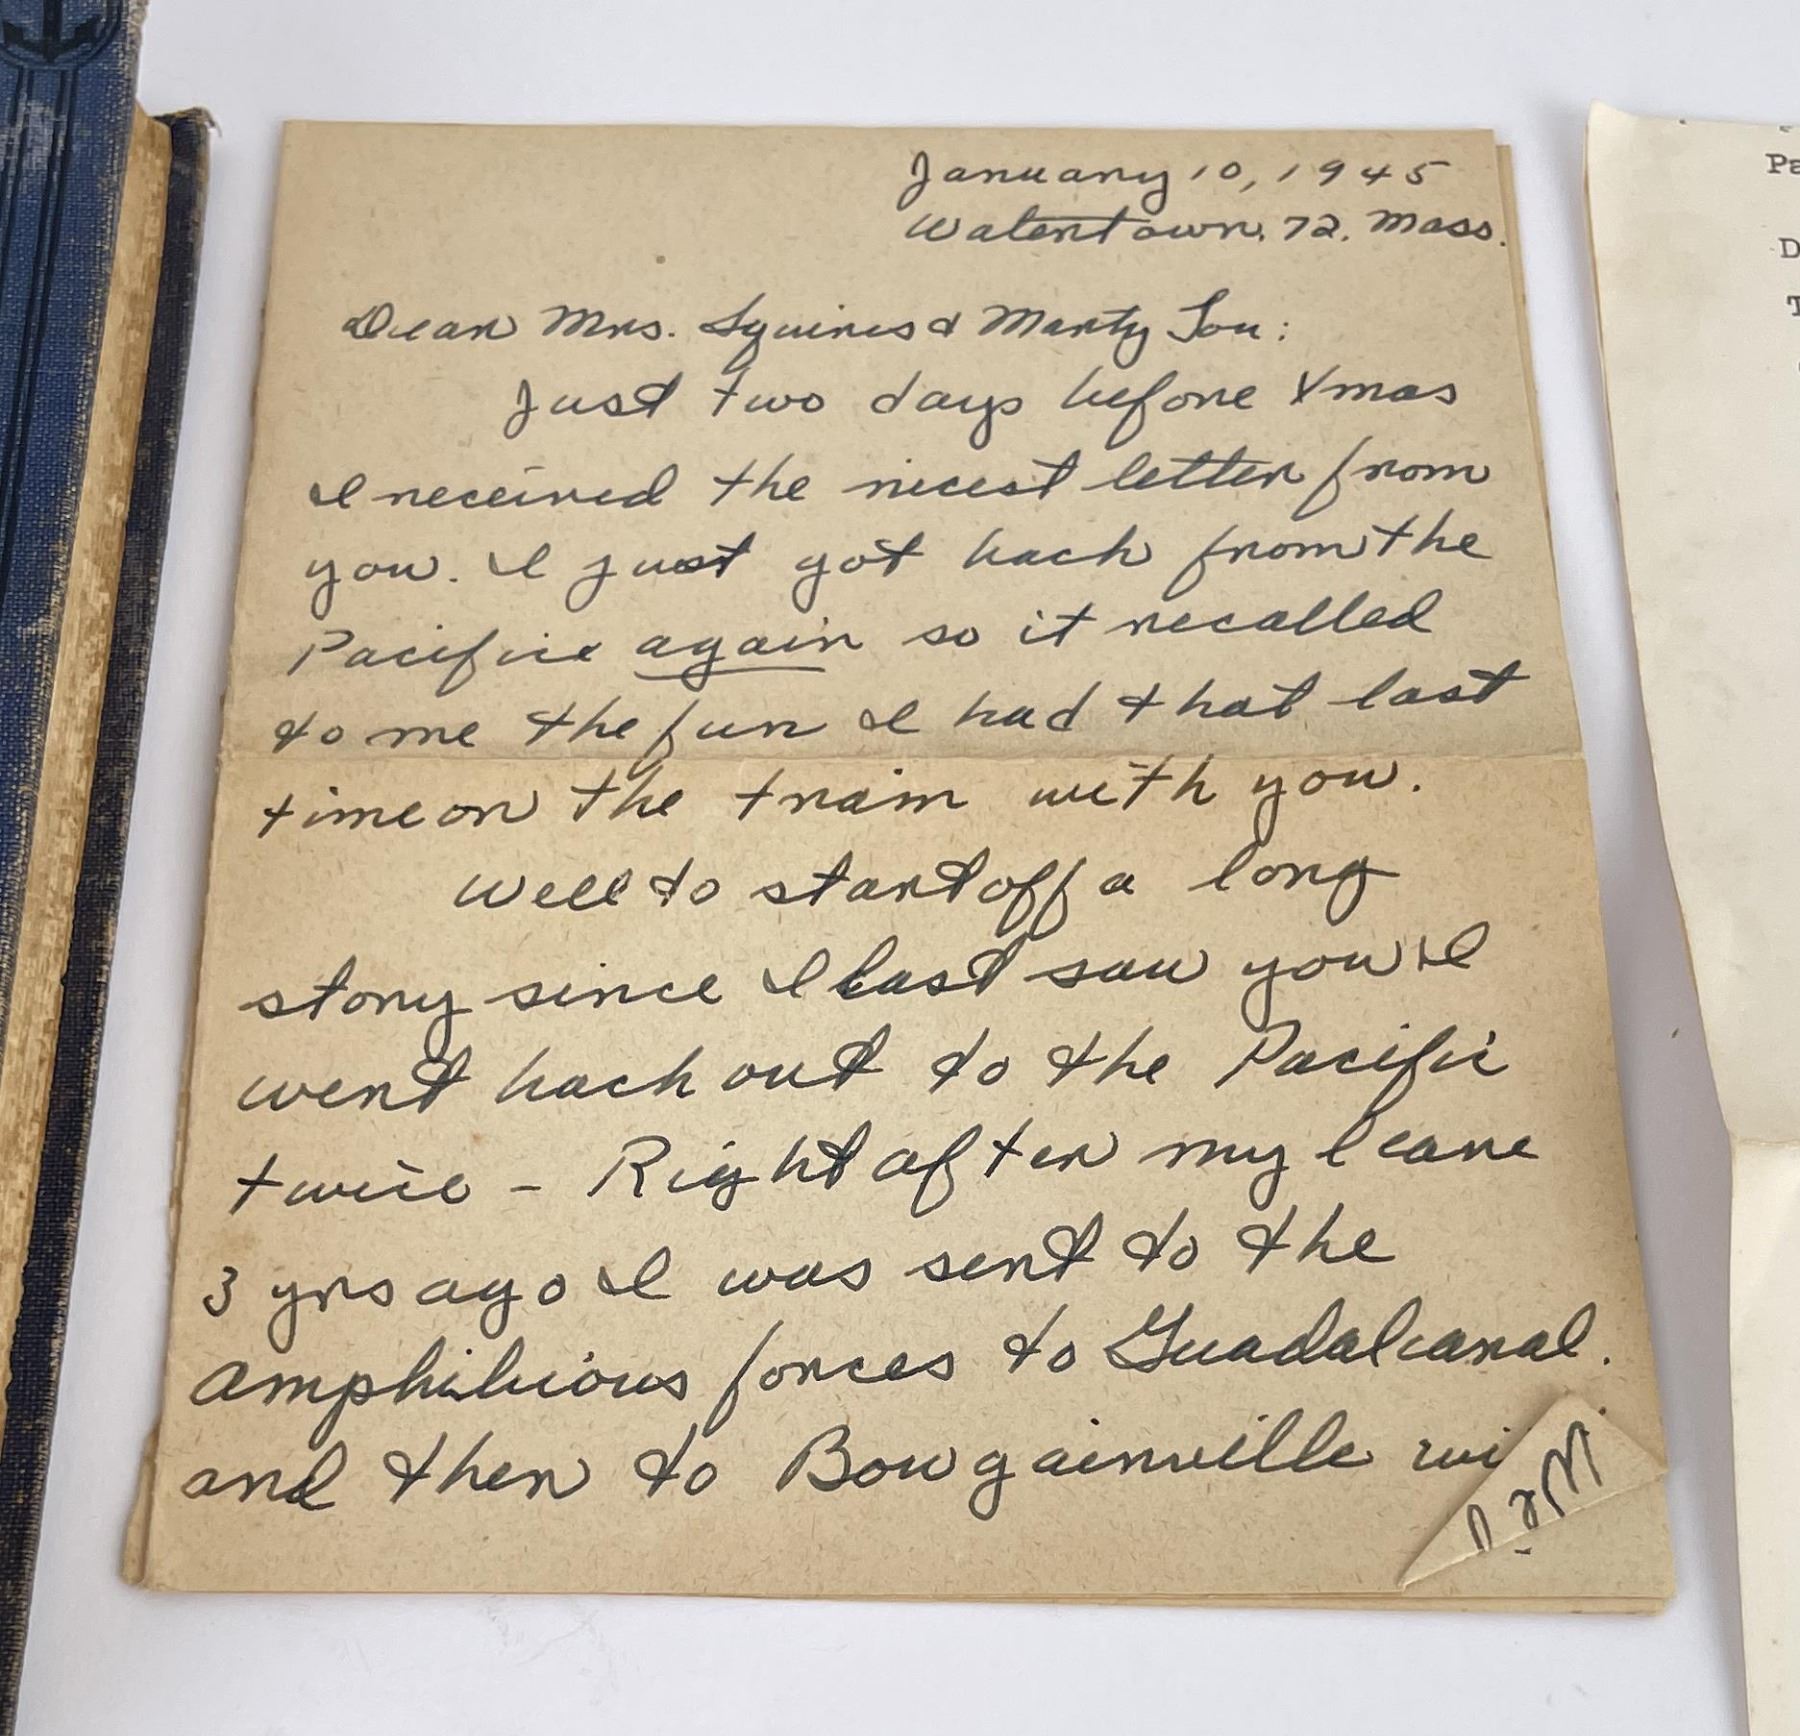 January 10, 1945
Watertown. 72. Mass.
Dear Mrs. Squires & Marty Lou:
Just two days before Xmas
I received the nicest letter from
you. I just got back from the
Pacific again so it recalled
to me the fun I had that last
time on the train with you.
Well to start off a long
story since I last saw you I
went back out to the Pacific
twice - Right after my leave
3 yrs ago I was sent to the
Amphibious forces to Guadalcanal.
and then to Bougainville wi
Pa
D
T